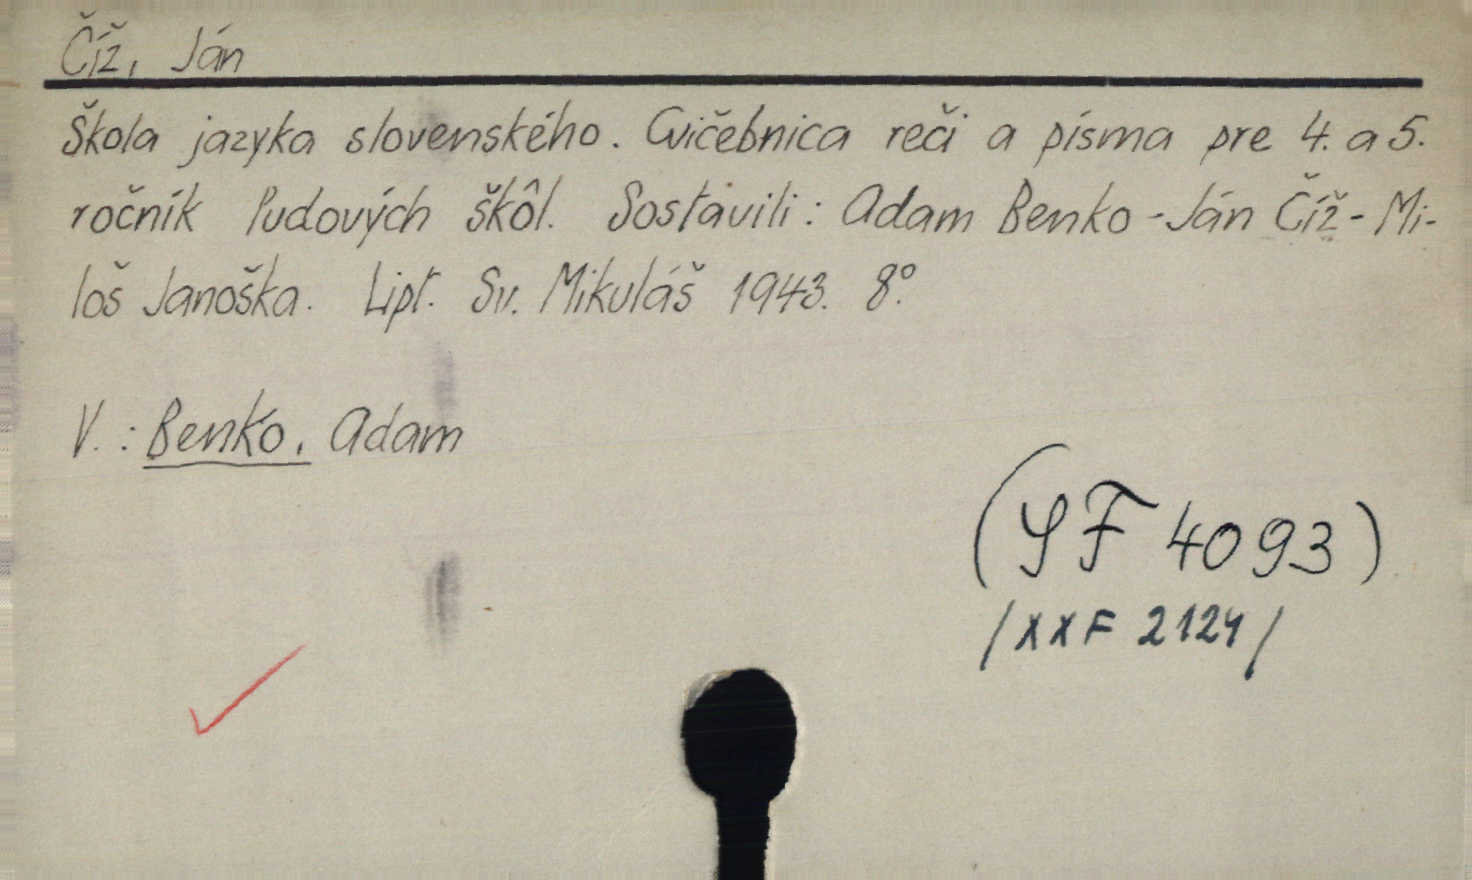 Číž, Ján
Škola jazyka slovenského. Cvičebnica reči a písma pre 4. a 5.
ročník ľudových škôl. Sostavili: Adam Benko - Ján Číž - Mi-
loš Janoška. Lipt. Sv. Mikuláš 1943. 8°.
V.: Benko, Adam
(SF 4093)
/XXF 2124/